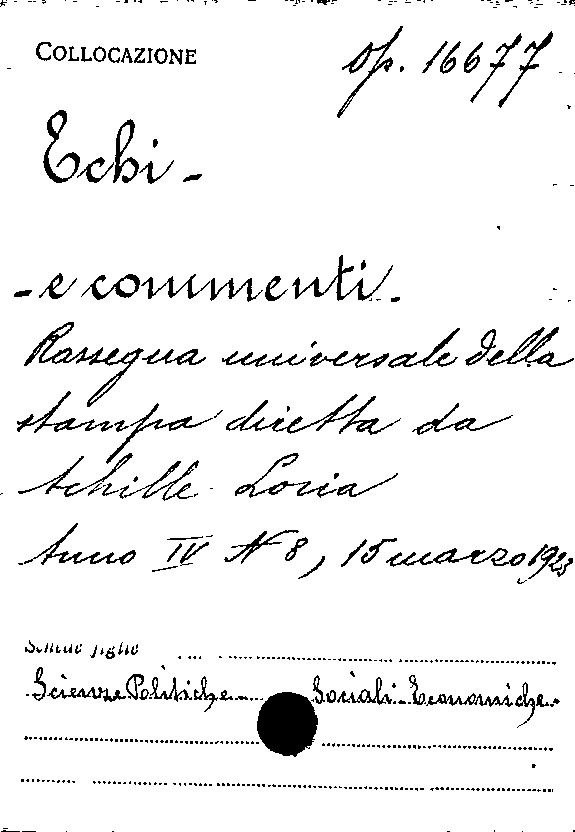 COLLOCAZIONE Op. 16677
Echi -
- e commenti.
Rassegna universale della
stampa diretta da
Achille Loria
Anno IV N 8, 15 marzo 1923
Schede figlie
Scienze Politiche Sociali-Economiche.